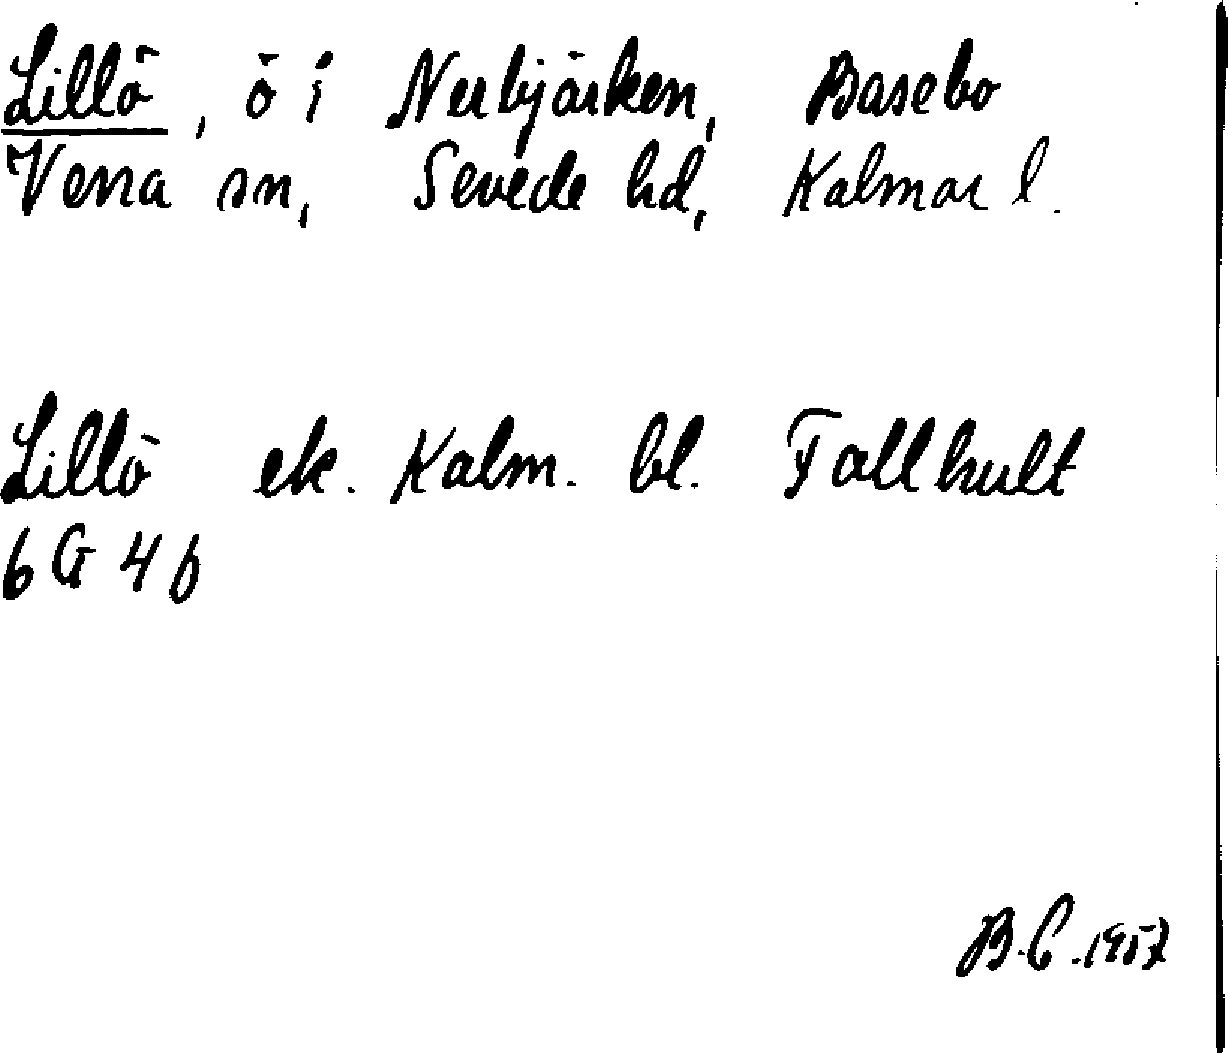 Lillö, ö i Nerbjärken, Basebo
Vena sn, Sevede hd, Kalmar l.
Lillö ek. Kalm. bl. Fallhult
6 G 4 b
B.C. 1957